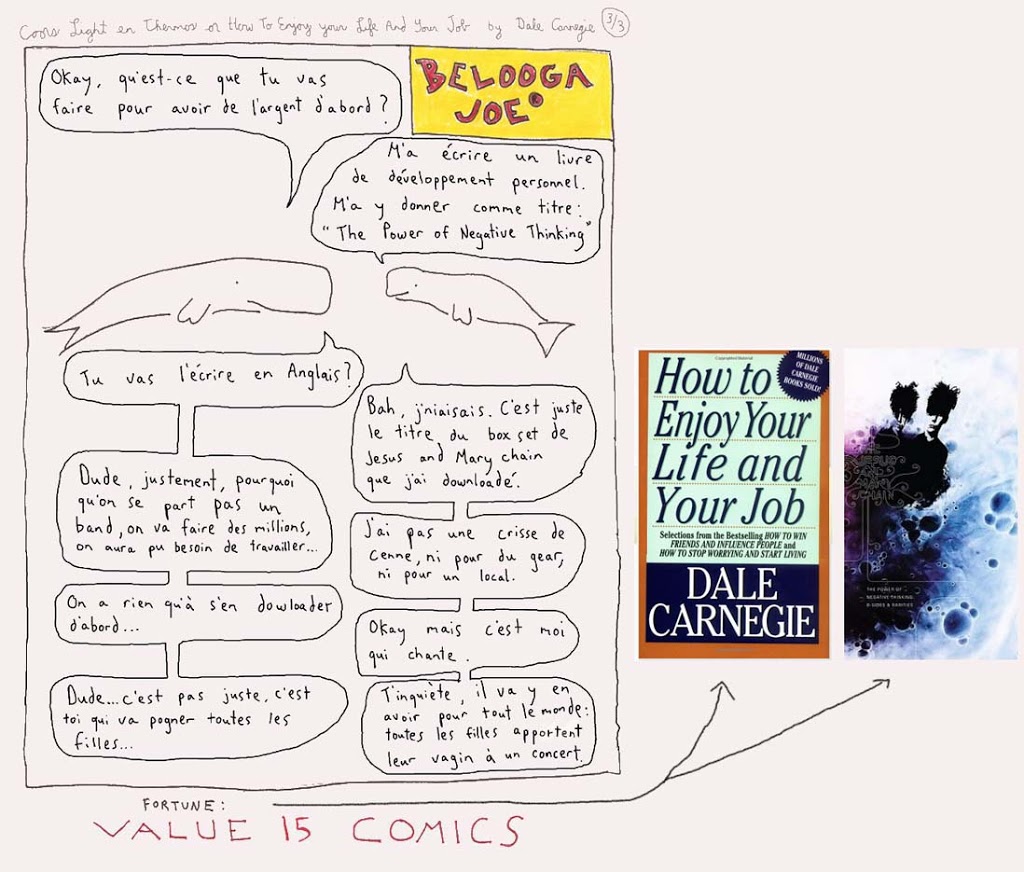 Coors Light en Thermos or How To Enjoy your Life And Your Job by Dale Carnegie 3/3
BELOOGA
JOE
Okay, qu'est-ce que tu vas
faire pour avoir de l'argent d'abord?
M'a écrire un livre
de développement personnel.
M'a y donner comme titre:
"The Power of Negative Thinking"
Tu vas l'écrire en Anglais?
Bah, j'niaisais. C'est juste
le titre du box set de
Jesus and Mary chain
que j'ai downloadé.
Dude, justement, pourquoi
qu'on se part pas un
band, on va faire des millions,
on aura pu besoin de travailler...
J'ai pas une crisse de
cenne, ni pour du gear,
ni pour un local.
On a rien qu'à s'en dowloader
d'abord...
Okay mais c'est moi
qui chante.
Dude... c'est pas juste, c'est
toi qui va pogner toutes les
filles...
T'inquiète, il va y en
avoir pour tout le monde:
toutes les filles apportent
leur vagin à un concert.
FORTUNE:
VALUE 15 COMICS
MILLIONS
OF DALE
CARNEGIE
BOOKS SOLD!
How to
Enjoy Your
Life and
Your Job
Selections from the Bestselling HOW TO WIN
FRIENDS AND INFLUENCE PEOPLE and
HOW TO STOP WORRYING AND START LIVING
DALE
CARNEGIE
THE JESUS
AND
MARY
CHAIN
THE POWER OF
NEGATIVE THINKING:
B-SIDES & RARITIES